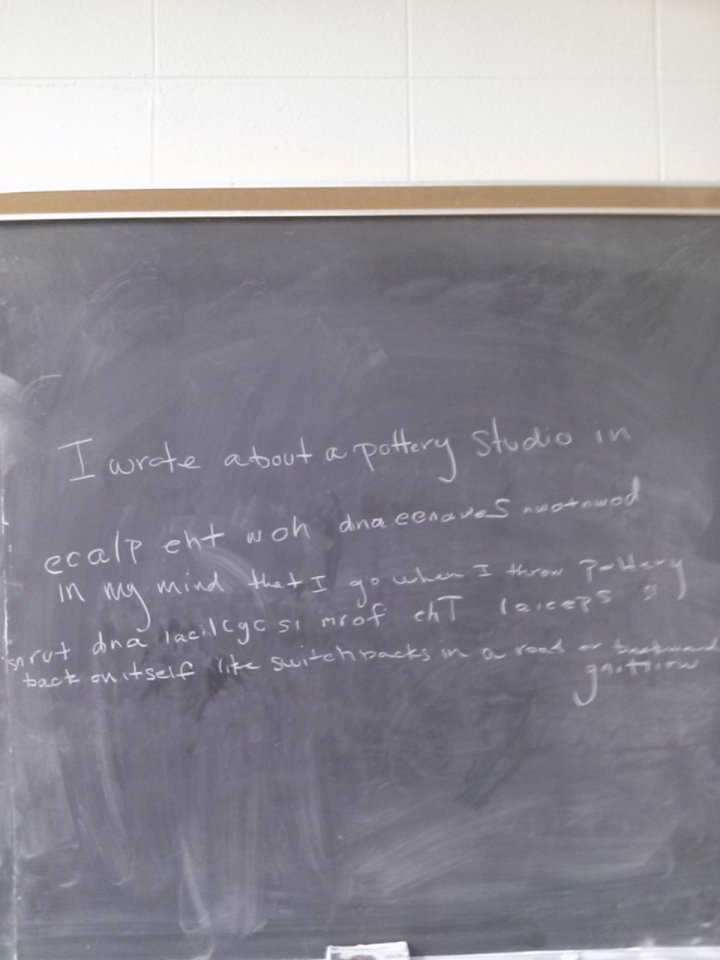 I wrote about a pottery Studio in
ecalp eht woh dna eenavaS nwotnwod
in my mind that I go when I throw pottery
snrut dna lacilcyc si mrof ehT laiceps si
back on itself like switchbacks in a road or backward
gnitirw